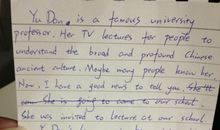 Yu Dan, is a famous university
professor. Her TV lectures for people to
understand the broad and profound Chinese
ancient culture. Maybe many people know her
Now, I have a good news to tell you,
She is going to come to our school.
She was invited to lecture at our school.